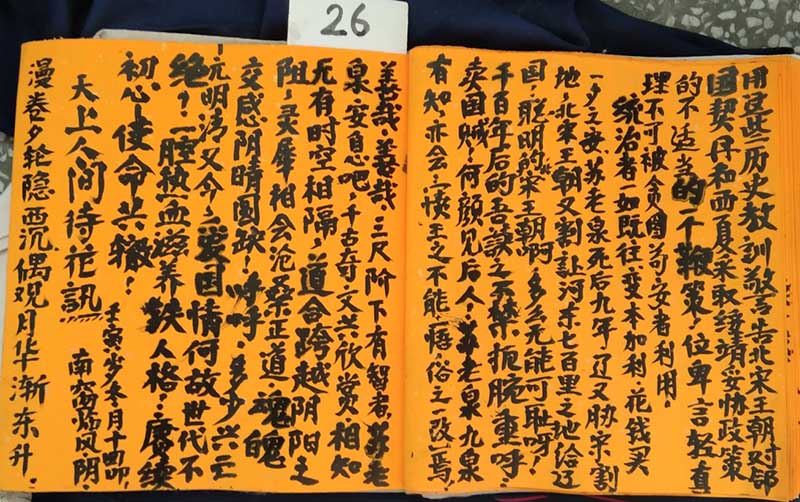 26
用这些历史教训警告北宋王朝对邻
国契丹和西夏采取绥靖妥协政策
的不适当的一个鞭策,位卑言轻直
理不可被贪图苟安者利用。
统治者一如既往变本加利,花钱买
一夕之安。苏老泉死后九年辽又胁宋割
地,北宋王朝又割让河东七百里之地给辽
国,聪明的宋王朝啊,多么无能可耻呀!
千百年后的吾读之不禁扼腕重呼,
卖国贼,何颜见后人,苏老泉九泉
有知,亦会:愤王之不能悟,俗之一改焉,
善哉,善哉,三尺阶下有智者,苏老
泉,安息吧,千古奇文共欣赏相知
无有时空相隔,道合跨越阴阳之
阻,灵犀相会沧桑正道,魂魄
交感阴晴圆缺!呼呼,多少兴亡
元明清又今,爱国情何故世代不
绝,一腔热血滋养铁人格,赓续
初心使命共辙!
天上人间待花訊
壬寅岁冬月十四卯,
南窗临风,阴,
漫卷夕轮隐西沉偶观月华渐东升.